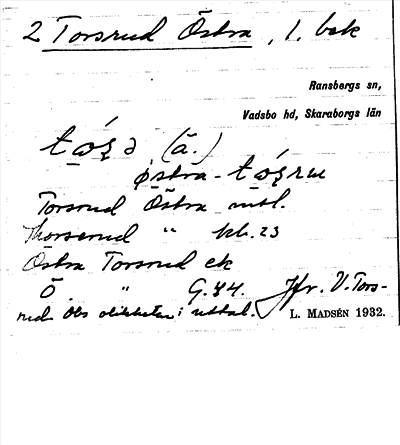 2 Torsrud Östra, 1. bak
Ransbergs sn,
Vadsbo hd, Skaraborgs län
(ā.)
østra-
Torsrud Östra mtl.
Thorserud " kb. 23
Östra Torsrud ek
Ö. " G.84. Jfr. V. Tors-
rud. Obs olikheten i uttal. L. MADSÉN 1932.